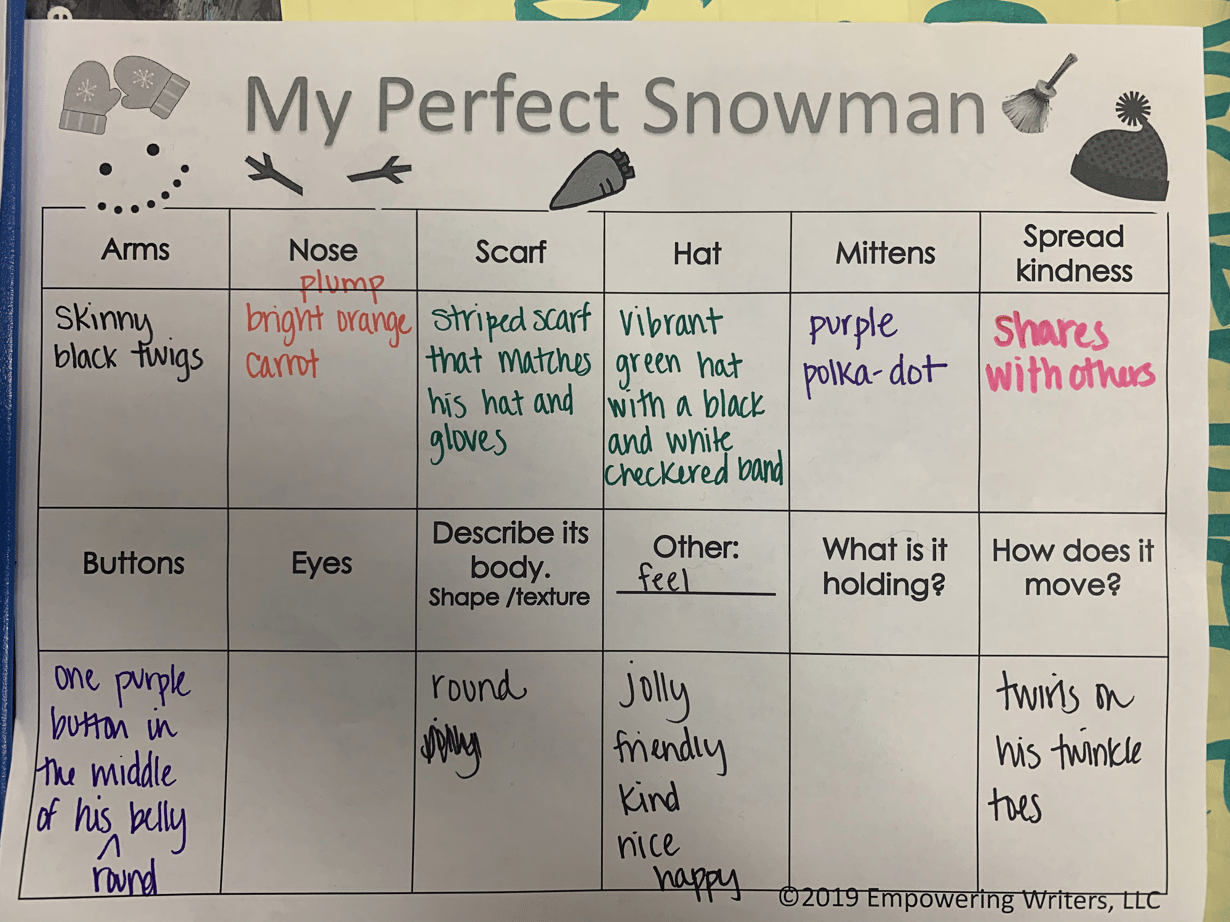 My Perfect Snowman
Arms
Nose
Scarf
Hat
Mittens
Spread
kindness
skinny
black twigs
plump
bright orange
carrot
striped scarf
that matches
his hat and
gloves
vibrant
green hat
with a black
and white
checkered band
purple
polka-dot
shares
with others
Buttons
Eyes
Describe its
body.
Shape /texture
Other:
feel
What is it
holding?
How does it
move?
one purple
button in
the middle
of his belly
^
round
round
jolly
friendly
kind
nice
happy
twirls on
his twinkle
toes
©2019 Empowering Writers, LLC